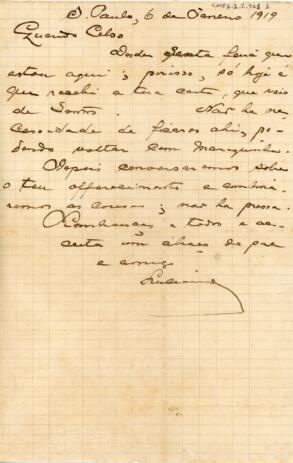 S. Paulo, 6 de Janeiro 1919
Querido Celso
Desde sexta feira que
estou aqui; porisso, só hoje é
que recebi a tua carta, que veio
de Santos. Não ha ne-
cessidade de ficares ahi, po-
dendo voltar com Mariquinha.
Depois conversaremos sobre
o teu offerecimento e combina-
remos as cousas; não ha pressa.
Lembranças a todos e ac-
ceita um abraço de pae
e amigo